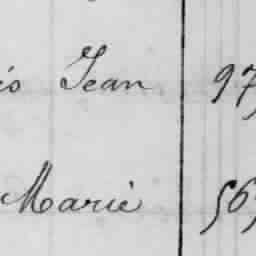 is Jean 97
Marie 56